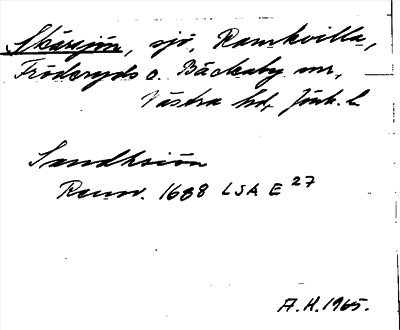 Skärsjön, sjö, Ramkvilla,
Fröderyds o. Bäckaby snr,
Västra hd, Jönk. l.
Sandhsiön
Renov. 1688 LSA E 27
A.H. 1965.